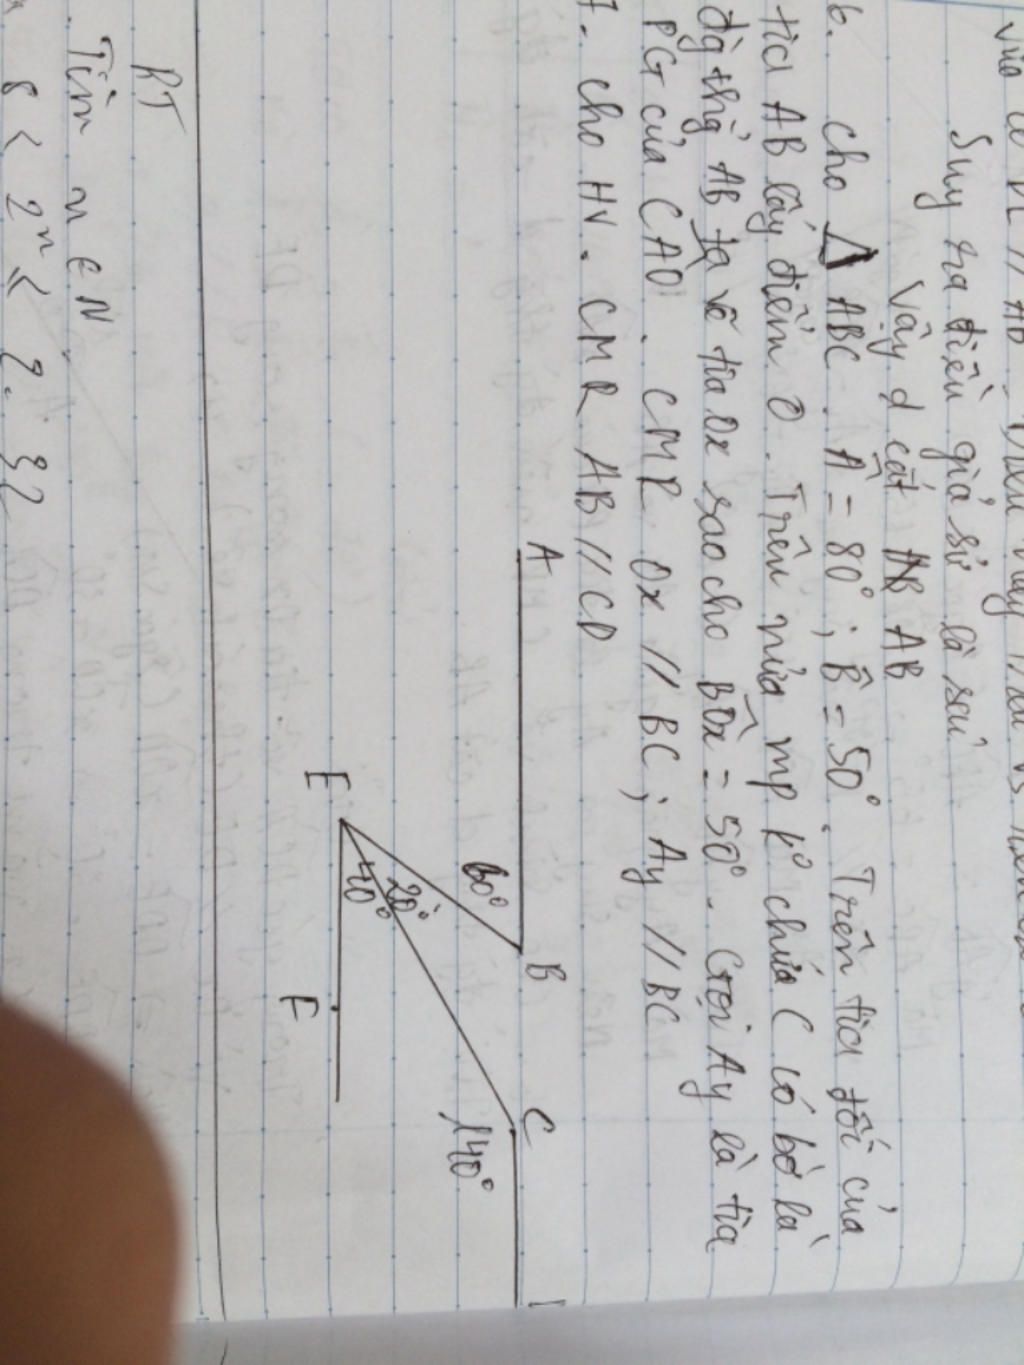 Suy ra điều giả sử là sai
Vậy d cắt AB
6. cho Δ ABC. Â = 80°; B̂ = 50°. Trên tia đối của
tia AB lấy điểm O. Trên nửa mp k° chứa C có bờ là
đg thg AB ta vẽ tia Ox sao cho BÔx = 50°. Gọi Ay là tia
PG của CAO. CMR Ox // BC; Ay // BC
7. cho HV. CMR AB // CD
A
B
C
60°
140°
20°
40°
E
F
BT
Tìm n ∈ N
8 < 2ⁿ ≤ 2. 32